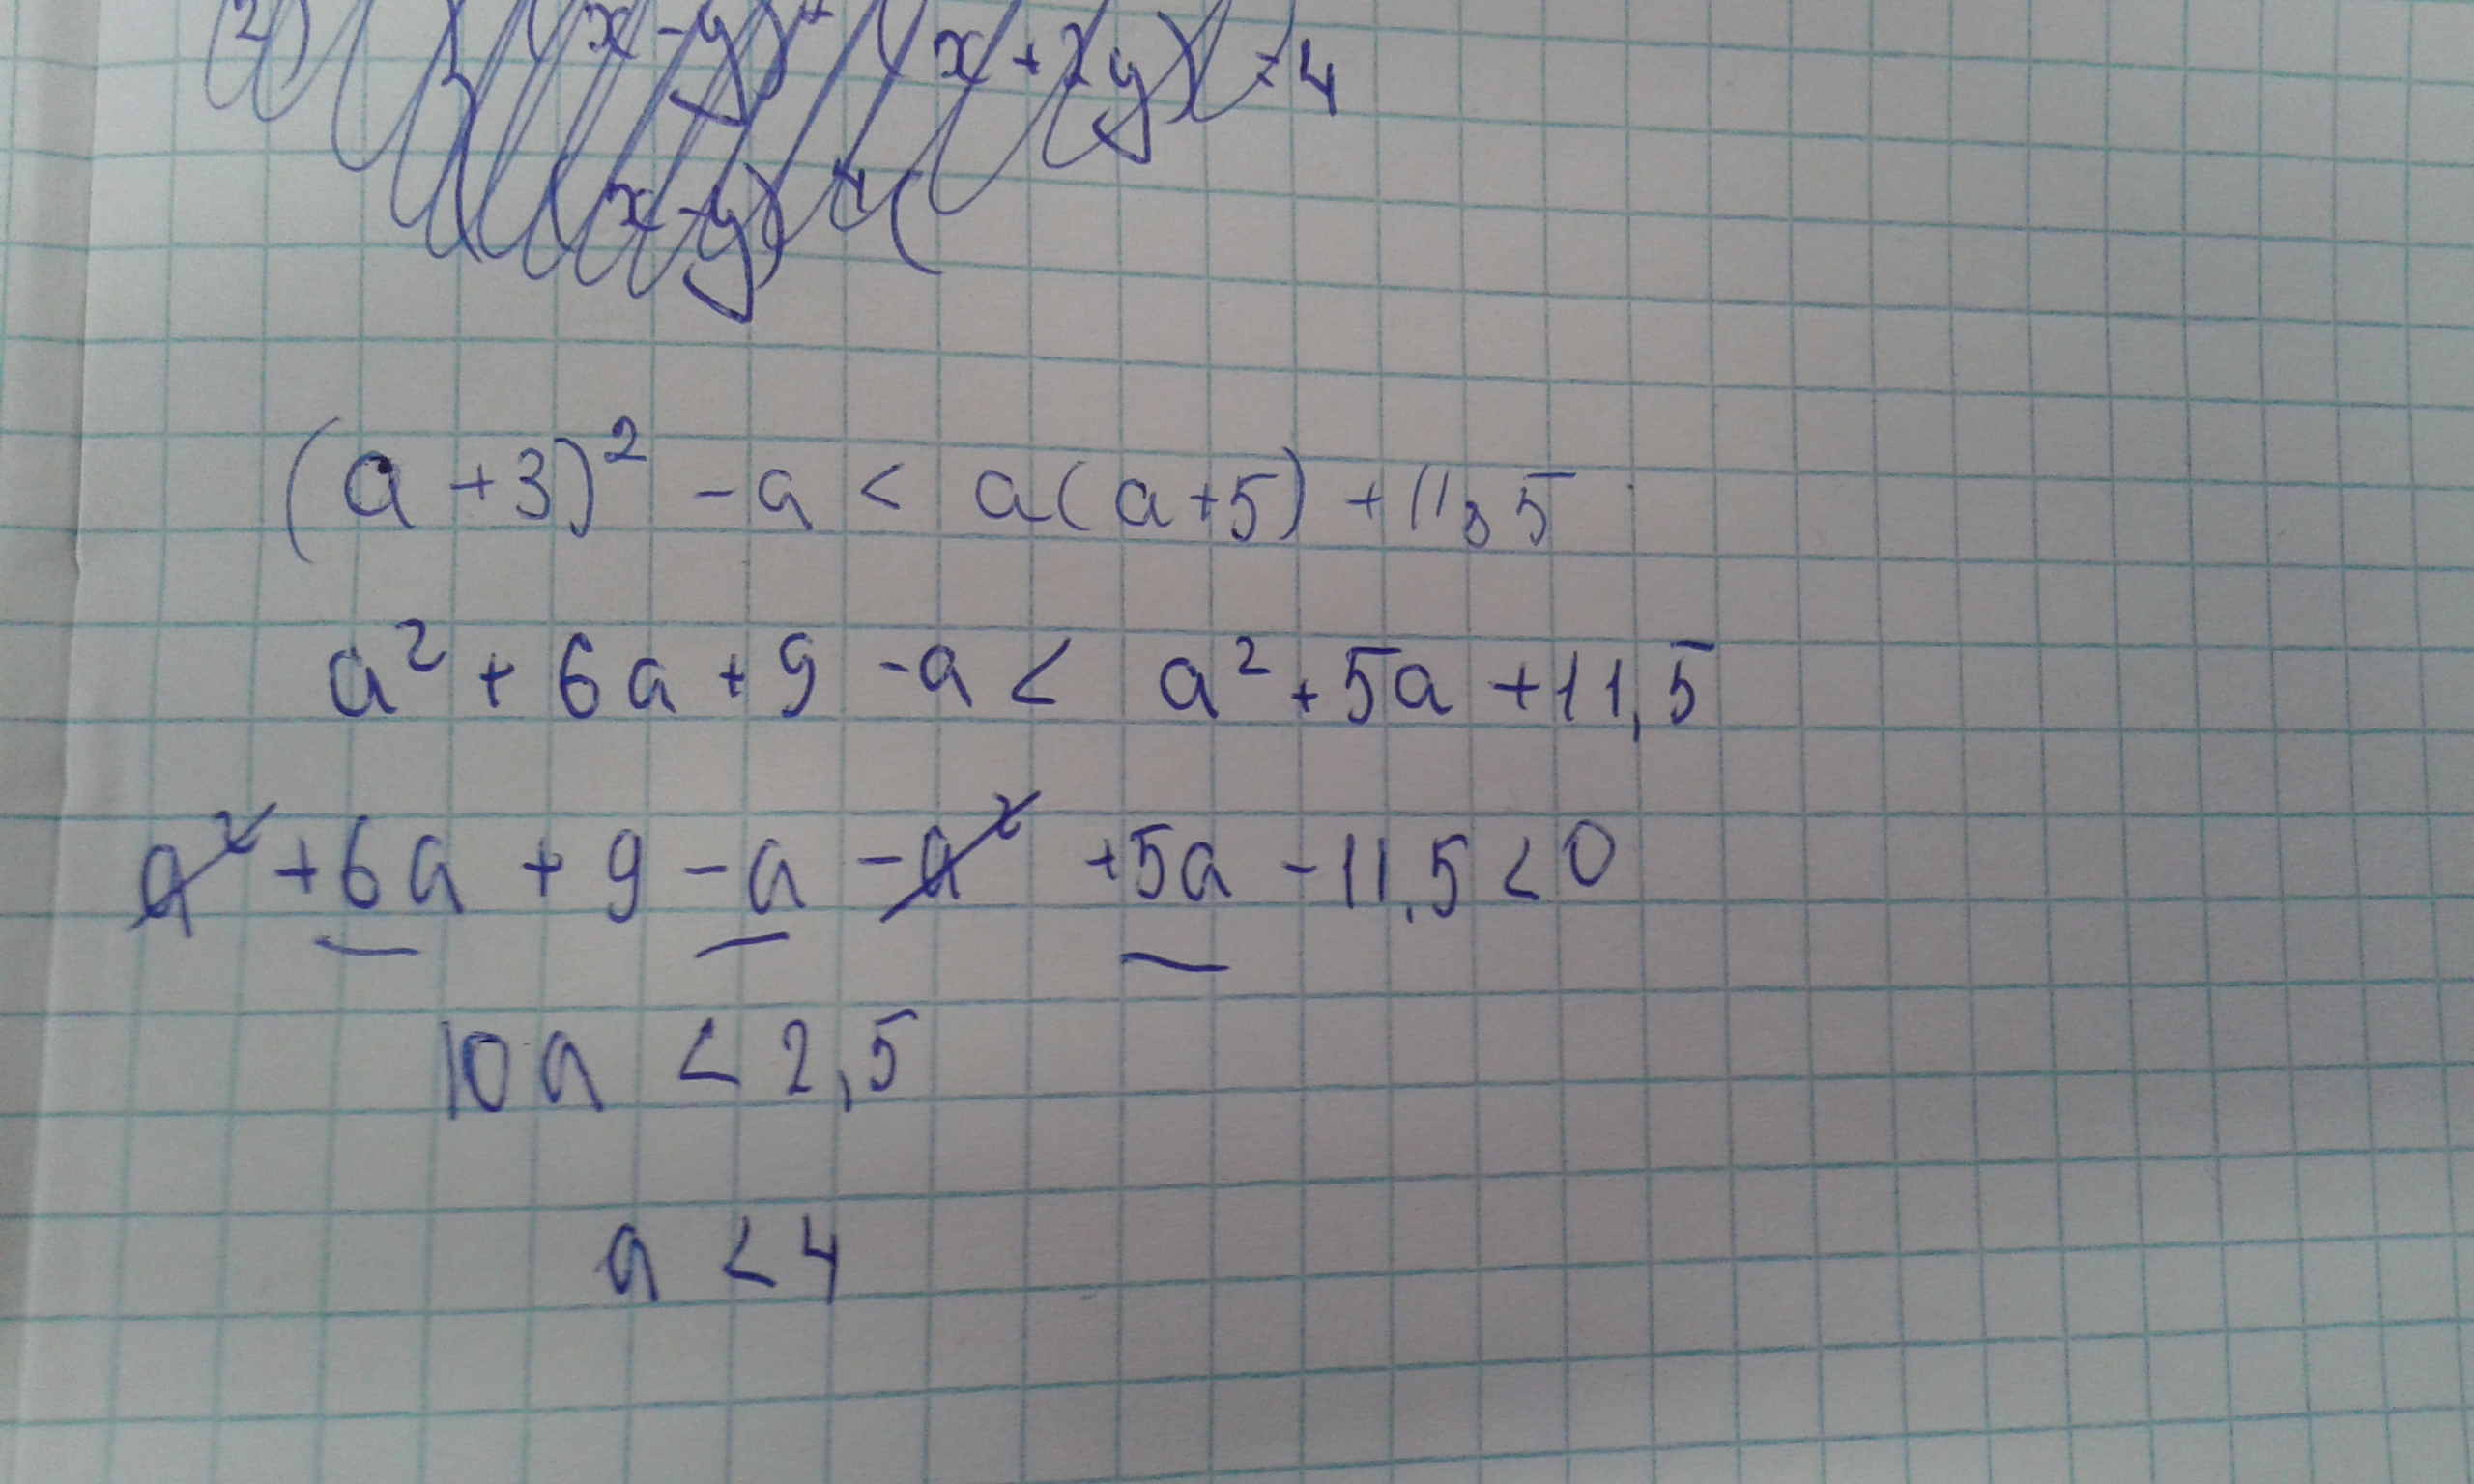 2)
x - y)² (x + 2y) = 4
x - y) + (
(a + 3)² - a < a(a+5) + 11,5
a² + 6a + 9 - a < a² + 5a + 11,5
a² + 6a + 9 - a - a² + 5a - 11,5 < 0
10a < 2,5
a < 4